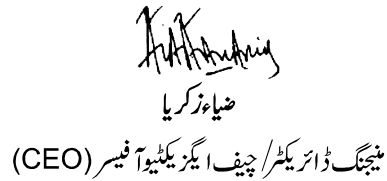 ضیاء زکریا
منیجنگ ڈائریکٹر/ چیف ایگزیکٹیو آفیسر (CEO)